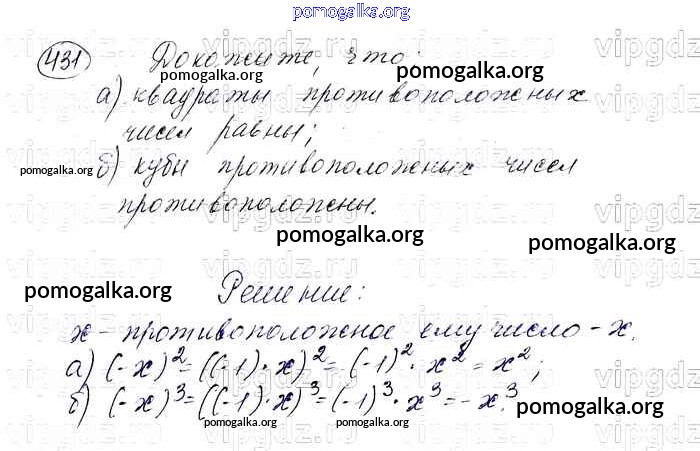 pomogalka.org
431 Докажите, что:
pomogalka.org
а) квадраты противоположных
чисел равны;
б) кубы противоположных чисел
pomogalka.org
противоположны.
pomogalka.org pomogalka.org
pomogalka.org
Решение:
x - противоположное ему число -x.
а) (-x)² = ((-1)·x)² = (-1)²·x² = x²;
б) (-x)³ = ((-1)·x)³ = (-1)³·x³ = -x³.
pomogalka.org
pomogalka.org pomogalka.org
vipgdz.ru